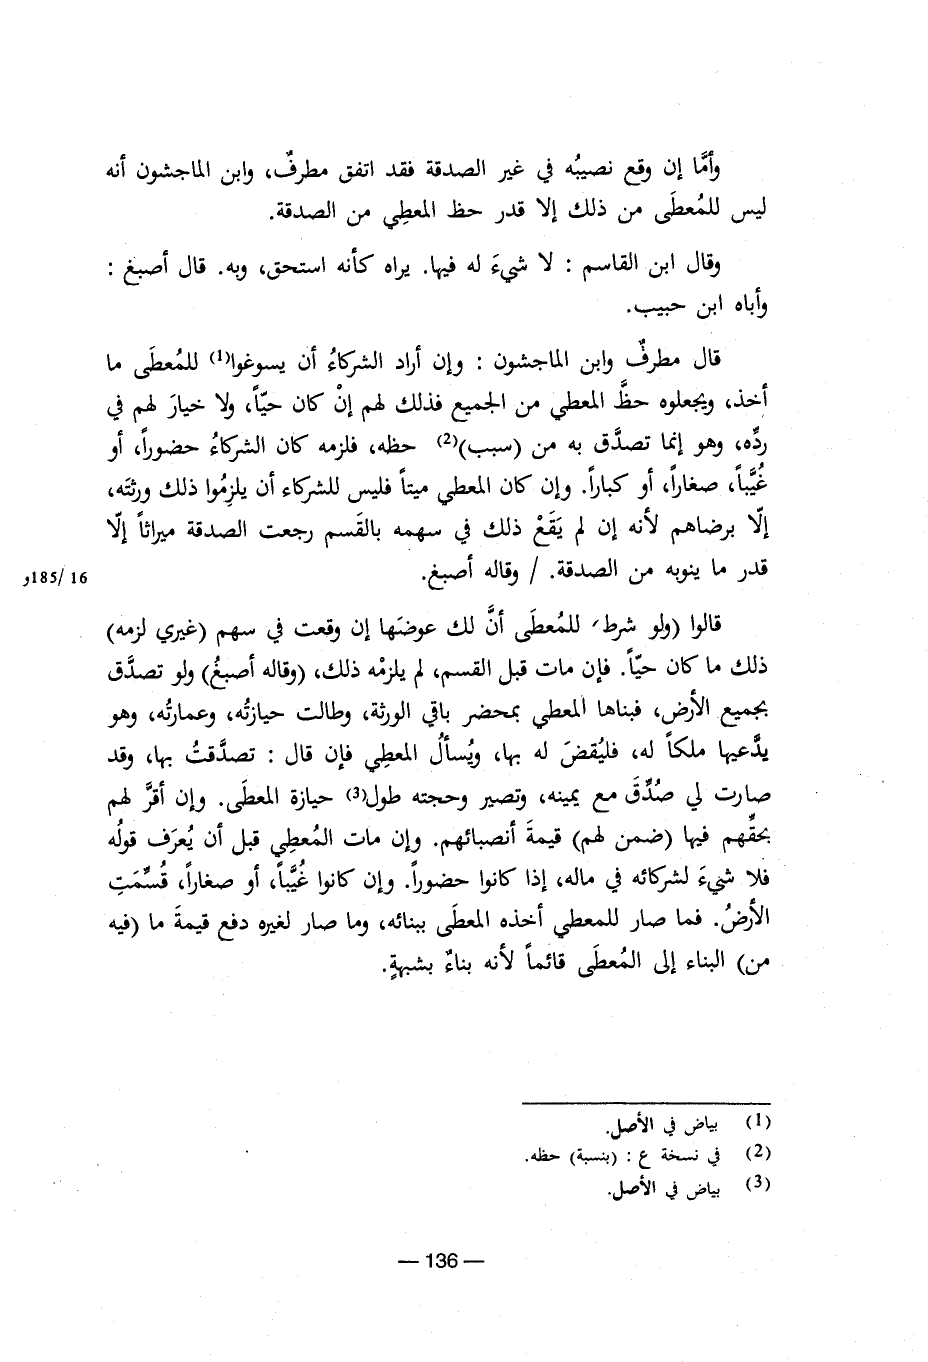 وأمَّا إن وقع نصيبُه في غير الصدقة فقد اتفق مطرفٌ، وابن الماجشون أنه
ليس للمُعطَى من ذلك إلا قدر حظ المعطِي من الصدقة.
وقال ابن القاسم : لا شيءَ له فيها. يراه كأنه استحق، وبه. قال أصبغ :
وأباه ابن حبيب.
قال مطرفٌ وابن الماجشون : وإن أراد الشركاءُ أن يسوغوا(1) للمُعطَى ما
أخذ، ويجعلوه حظَّ المعطي من الجميع فذلك لهم إنْ كان حيّاً، ولا خيارَ لهم في
ردِّه، وهو إنما تصدَّق به من (سبب)(2) حظه، فلزمه كان الشركاءُ حضوراً، أو
غُيَّباً، صغاراً، أو كباراً. وإن كان المعطي ميتاً فليس للشركاء أن يلزِمُوا ذلك ورثتَه،
إلّا برضاهم لأنه إن لم يَقَعْ ذلك في سهمه بالقَسم رجعت الصدقة ميراثاً إلّا
قدر ما ينوبه من الصدقة. / وقاله أصبغ.
16 /185و
قالوا (ولو شرط، للمُعطَى أنَّ لك عوضَها إن وقعت في سهم (غيري لزمه)
ذلك ما كان حيّاً. فإن مات قبل القسم، لم يلزمْه ذلك، (وقاله أصبغُ) ولو تصدَّق
بجميع الأرض، فبناها المعطي بمحضر باقي الورثة، وطالت حيازتُه، وعمارتُه، وهو
يدَّعيها ملكاً له، فليُقضَ له بها، ويُسألُ المعطِي فإن قال : تصدَّقتُ بها، وقد
صارت لي صُدِّقَ مع يمينه، وتصير وحجته طول(3) حيازة المعطَى. وإن أقرَّ لهم
بحقِّهم فيها (ضمن لهم) قيمةَ أنصبائهم. وإن مات المُعطِي قبل أن يُعرَف قولُه
فلا شيءَ لشركائه في ماله، إذا كانوا حضوراً. وإن كانوا غُيَّباً، أو صغاراً، قُسِّمَتِ
الأرضُ. فما صار للمعطي أخذه المعطَى ببنائه، وما صار لغيره دفع قيمةَ ما (فيه
من) البناء إلى المُعطَى قائماً لأنه بناءٌ بشبهةٍ.
(1) بياض في الأصل.
(2) في نسخة ع : (بنسبة) حظه.
(3) بياض في الأصل.
— 136 —